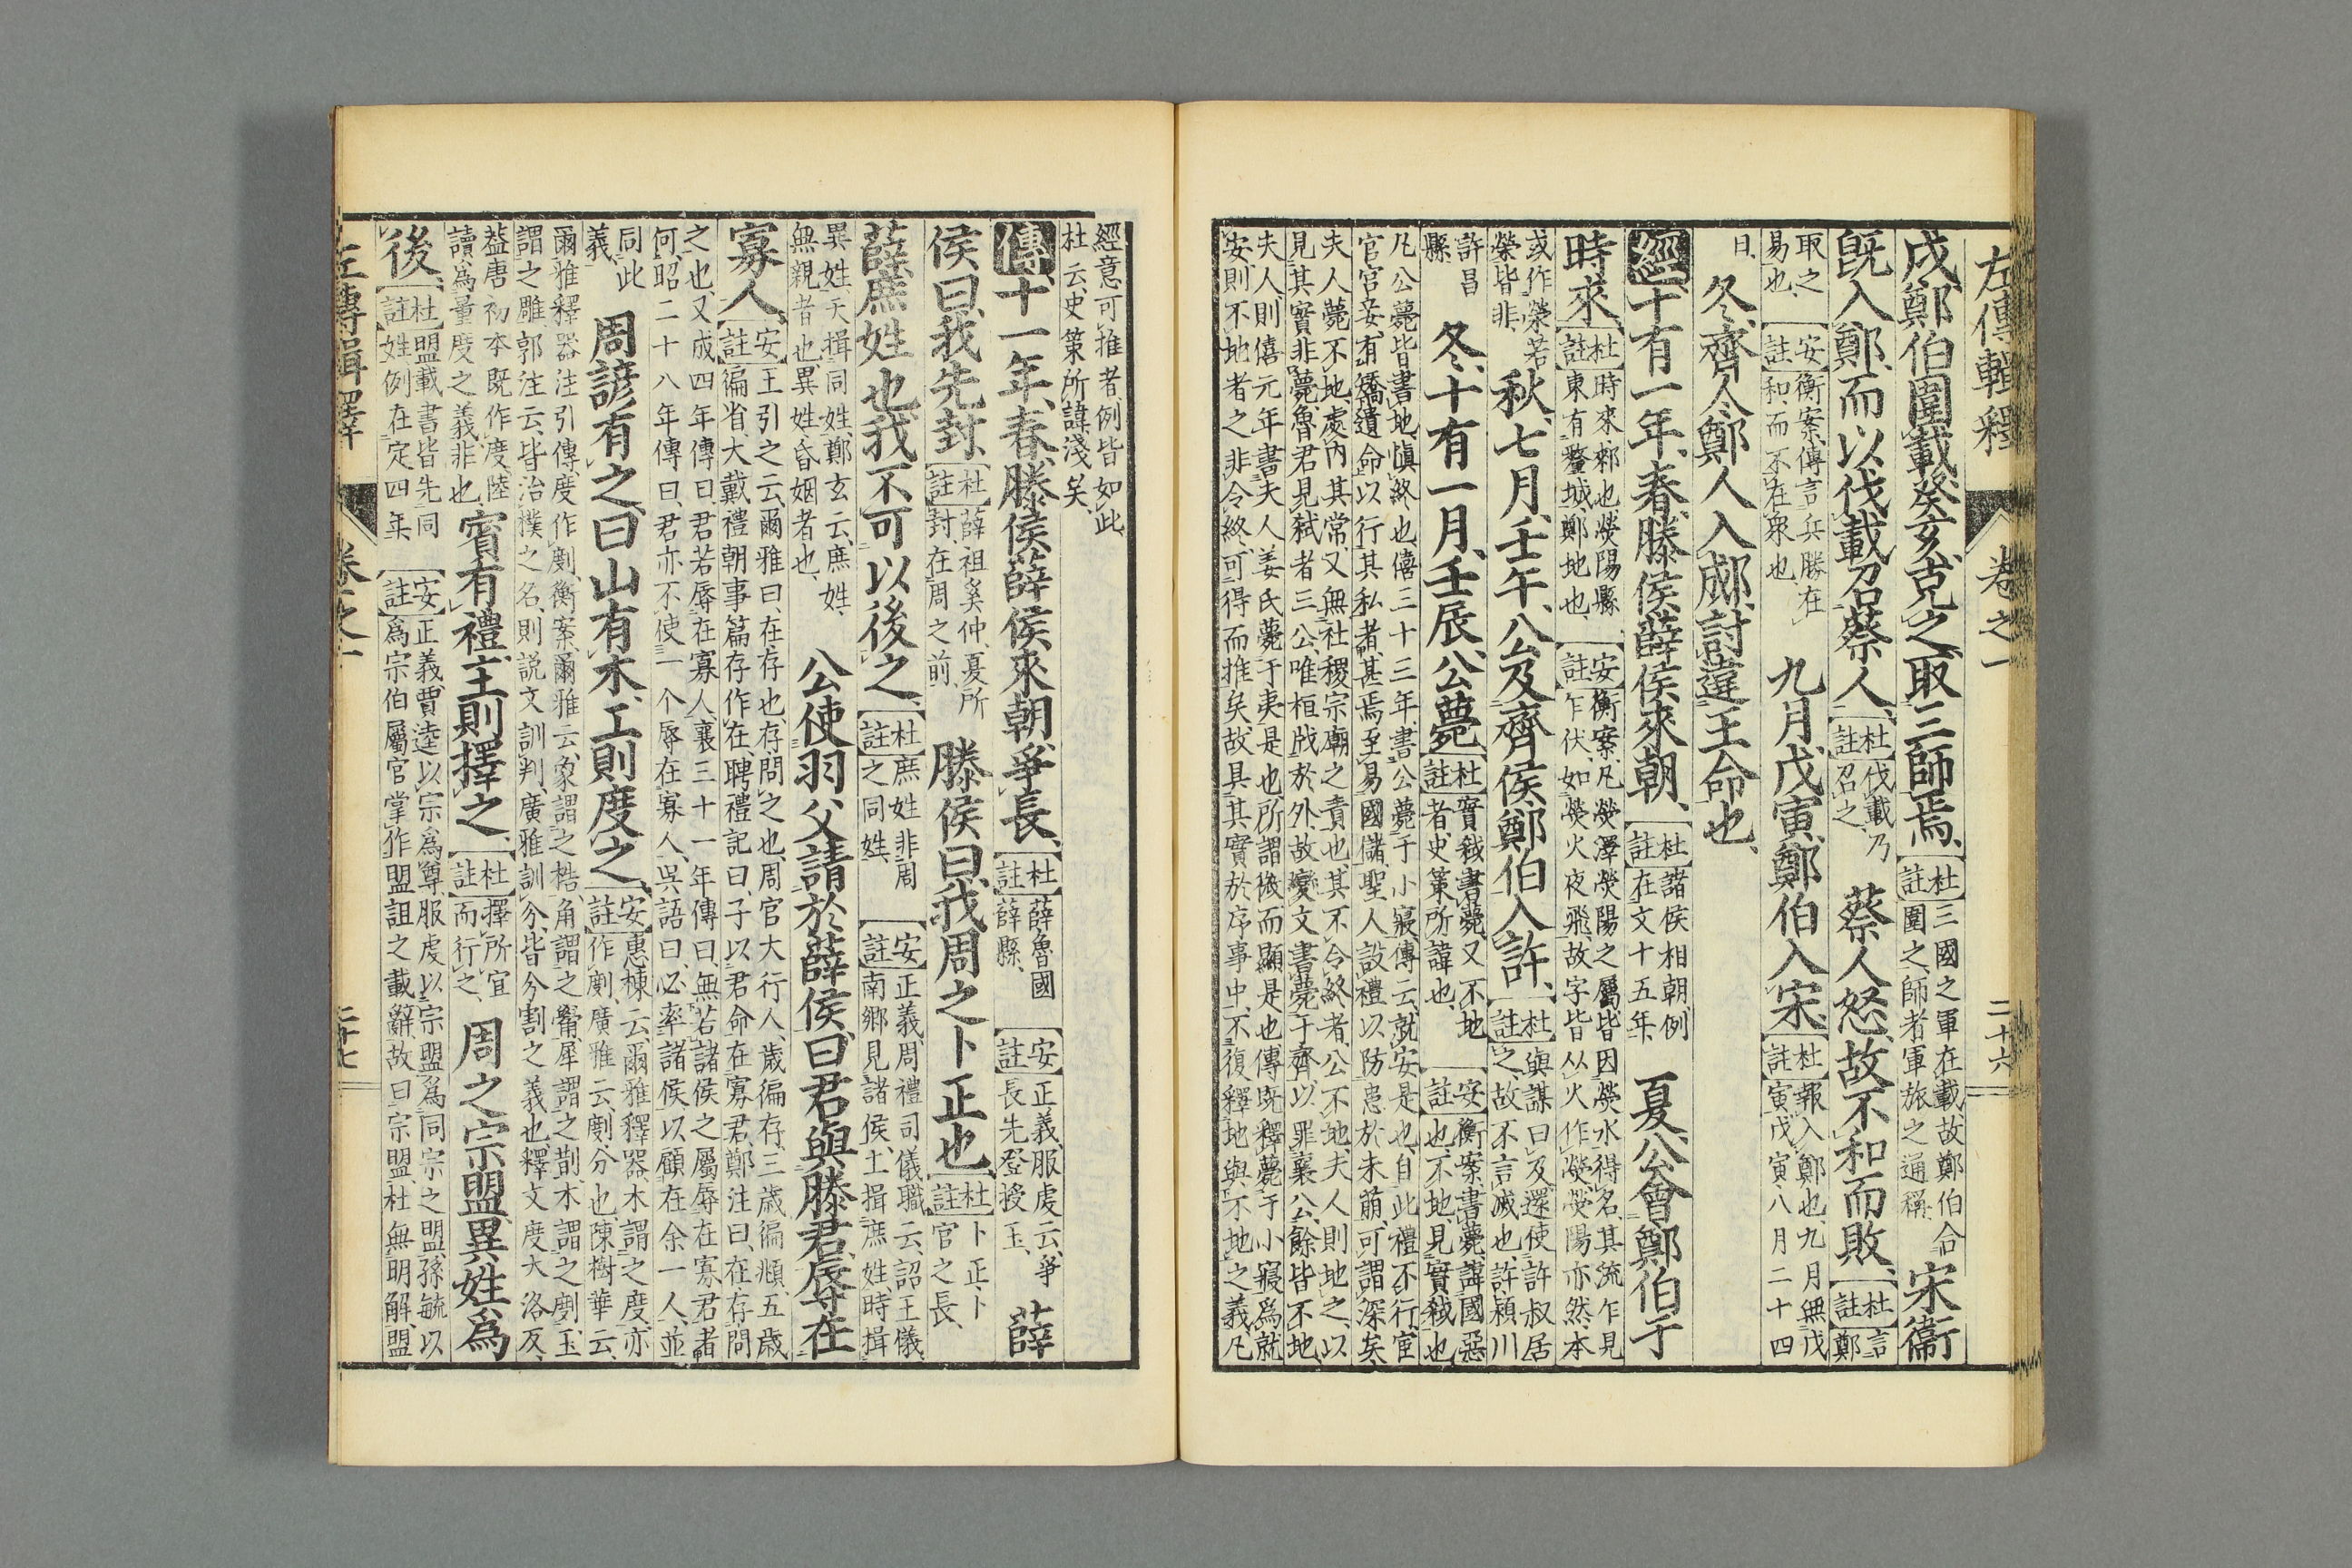 左傳輯釋 卷之一 二十六
戌鄭伯圍戴癸亥克之取三師焉、杜註三國之軍在戴故鄭伯合圍之、師者軍旅之通稱、宋衞
既入鄭、而以伐戴召蔡人、杜註伐戴乃召之、蔡人怒、故不和而敗、杜註言鄭
取之易也、安註衡案、傳言兵勝在和、而不在衆也、九月戊寅、鄭伯入宋、杜註報入鄭也、九月無戊寅、戊寅八月二十四
日、冬、齊人鄭人入郕、討違王命也、
經十有一年、春、滕侯薛侯來朝、杜註諸侯相朝、例在文十五年、夏、公會鄭伯于
時來、杜註時來郲也、熒陽縣東有釐城、鄭地也、安註衡案、凡熒澤熒陽之屬、皆因熒水得名、其流乍見乍伏、如熒火夜飛、故字皆从火作熒、熒陽亦然、本
或作滎、若榮皆非、秋、七月、壬午、公及齊侯、鄭伯入許、杜註與謀曰及、還使許叔居之、故不言滅也、許、潁川
許昌縣、冬、十有一月、壬辰、公薨、杜註實弑書薨、又不地者、史策所諱也、安註衡案、書薨、諱國惡也、不地、見實弑也
凡公薨皆書地、愼終也、僖三十三年、書公薨于小寢、傳云、就安是也、自此禮不行、宦官宮妾、有矯遺命以行其私者、甚焉至易國儲、聖人設禮以防患於未萌、可謂深矣
夫人薨不地、處內其常、又無社稷宗廟之責也、其不令終者、公不地、夫人則地之、以見其實非薨、魯君見弑者三公、唯桓戕於外、故變文書薨于齊以罪襄公、餘皆不地、
夫人則僖元年書夫人姜氏薨于夷是也、所謂微而顯是也、傳既釋薨于小寢爲就安、則不地者之非令終、可得而推矣、故具其實於序事中、不復釋地與不地之義、凡
經意可推者、例皆如此、杜云、史策所諱、淺矣、
傳十一年、春、滕侯薛侯來朝、爭長、杜註薛魯國薛縣、安註正義、服虔云、爭長先登授玉、薛
侯曰、我先封、杜註薛祖奚仲、夏所封、在周之前、滕侯曰、我周之卜正也、杜註卜正、卜官之長、
薛庶姓也、我不可以後之、杜註庶姓非周之同姓、安註正義、周禮司儀職云、詔王儀、南鄉見諸侯、土揖庶姓、時揖
異姓、天揖同姓、鄭玄云、庶姓、無親者也、異姓昏姻者也、公使羽父請於薛侯、曰君與滕君、辱在
寡人、安註王引之云、爾雅曰、在存也、存問之也、周官大行人、歲徧存、三歲徧頫、五歲徧省、大戴禮朝事篇存作在、聘禮記曰、子以君命在寡君、鄭注曰、在存問
之也、又成四年傳曰、君若辱在寡人、襄三十一年傳曰、無若諸侯之屬辱在寡君者何、昭二十八年傳曰、君亦不使一个辱在寡人、吳語曰、必率諸侯以顧在余一人、並
同此義、周諺有之、曰山有木、工則度之、安註惠棟云、爾雅釋器、木謂之度、亦作劇、廣雅云、劇、分也、陳樹華云、
爾雅釋器注引傳、度作劇、衡案、爾雅云、象謂之鵠、角謂之觷、犀謂之剒、木謂之劇、玉謂之雕、郭注云、皆治樸之名、則說文訓判、廣雅訓分、皆分割之義也、釋文度大洛反、
葢唐初本既作度、陸讀爲量度之義、非也、賓有禮、主則擇之、杜註擇所宜而行之、周之宗盟、異姓爲
後、杜註盟載書皆先同姓、例在定四年、安註正義、賈逵以宗爲尊、服虔以宗盟爲同宗之盟、孫毓以爲宗伯屬官、掌作盟詛之載辭、故曰宗盟、杜無明解、盟
左傳輯釋 卷之一 二十七